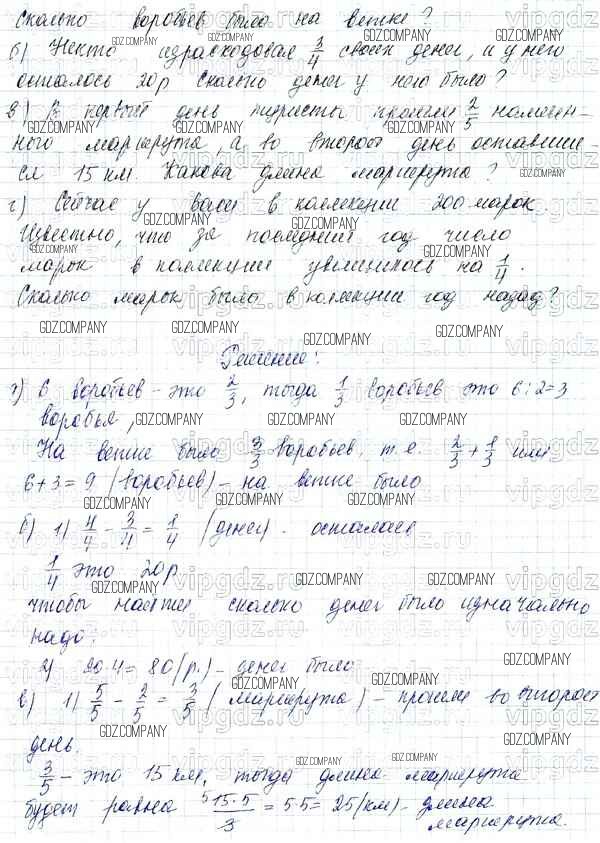 сколько воробьев было на ветке?
б) Некто израсходовал 3/4 своих денег, и у него
осталось 20р Сколько денег у него было?
в) В первый день туристы прошли 2/5 намечен-
ного маршрута, а во второй день оставшие-
ся 15 км. Какова длина маршрута?
г) Сейчас у Васи в коллекции 200 марок
Известно, что за последний год число
марок в коллекции увеличилось на 1/4.
Сколько марок было в коллекции год назад?
Решение:
6 воробьев - это 2/3, тогда 1/3 воробьев это 6:2=3
воробья,
На ветке было 3/3 воробьев, т.е. 2/3 + 1/3 или
6+3=9 (воробьев) - на ветке было
б) 1) 4/4 - 3/4 = 1/4 (денег) - осталось
1/4 это 20р
чтобы найти сколько денег было изначально
надо:
2) 20·4= 80(р.) - денег было
в) 1) 5/5 - 2/5 = 3/5 (маршрута) - прошли во второй
день.
3/5 - это 15 км, тогда длина маршрута
будет равна 15·5/3 = 5·5= 25(км) - длина
маршрута.